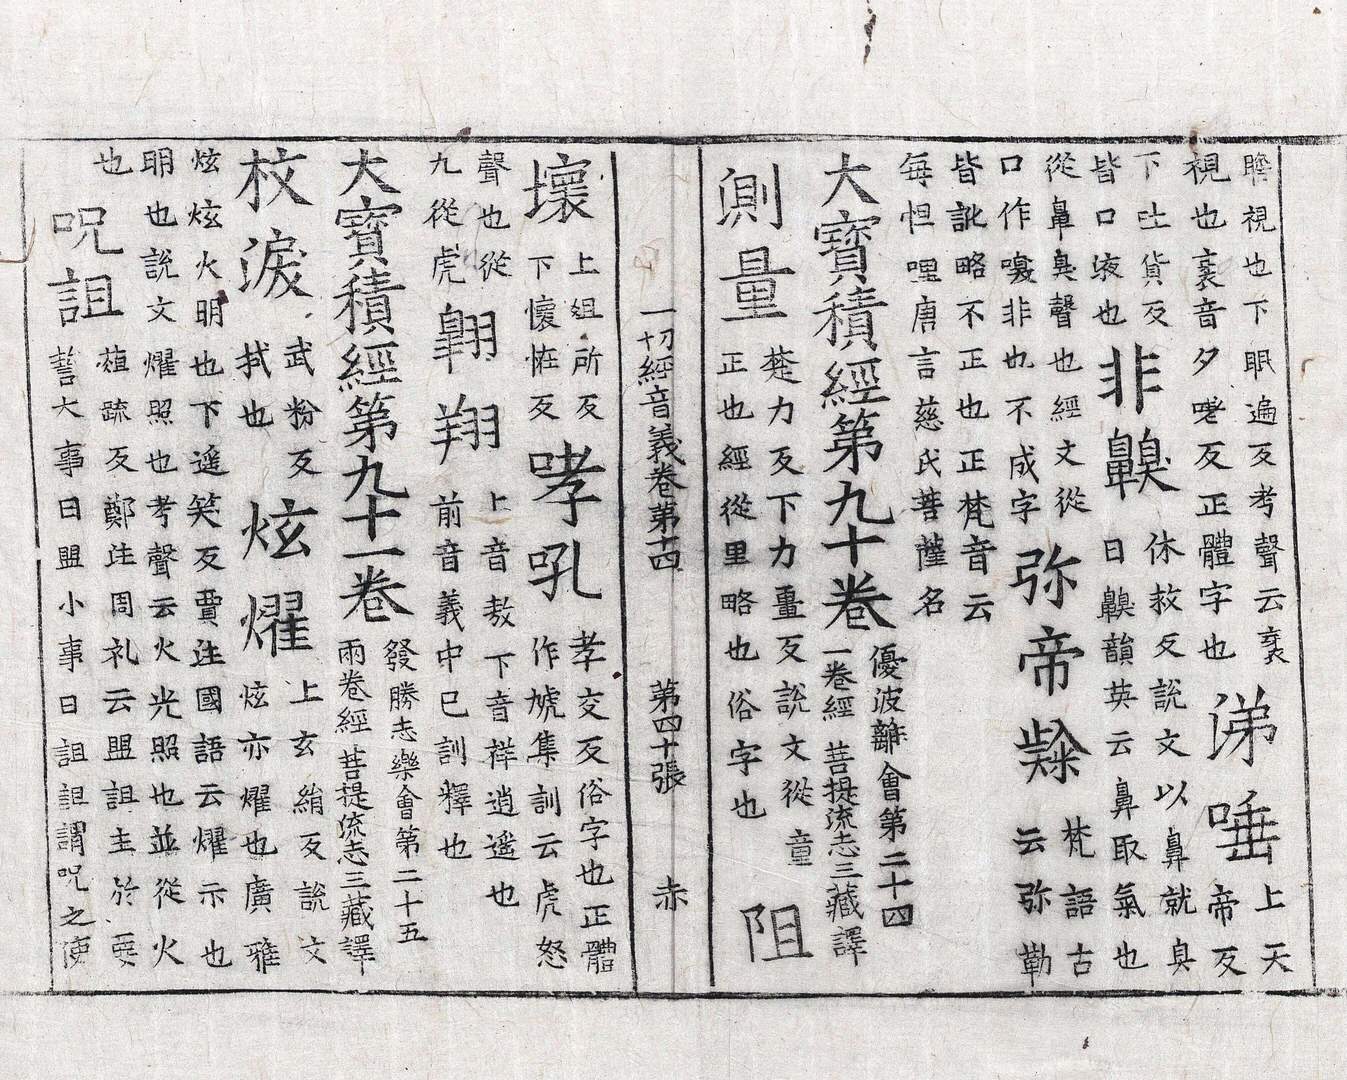 瞻視也下眠遍反考聲云衺
視也衺音夕嗟反正體字也
涕唾
上天
帝反
下吐貨反
皆口液也
非齅
休救反說文以鼻就臭
曰齅韻英云鼻取氣也
從鼻臭聲也經文從
口作嗅非也不成字
弥帝隸
梵語古
云弥勒
皆訛略不正也正梵音云
每怛哩唐言慈氏菩薩名
大寶積經第九十卷
優波離會第二十四
一卷經 菩提流志三藏譯
測量
楚力反下力畺反說文從童
正也經從里略也俗字也
阻
一切經音義卷第十四 第四十張 赤
壞
上姐所反
下懷恠反
哮吼
孝交反俗字也正體
作虓集訓云虎怒
聲也從
九從虎
翱翔
上音敖下音祥逍遥也
前音義中已訓釋也
大寶積經第九十一卷
發勝志樂會第二十五
兩卷經 菩提流志三藏譯
抆淚
武粉反
拭也
炫燿
上玄絹反說文
炫亦燿也廣雅
炫炫火明也下遥笑反賈注國語云燿示也
明也說文燿照也考聲云火光照也並從火
也
呪詛
葅疏反鄭注周礼云盟詛主於要
誓大事曰盟小事曰詛詛謂呪之使